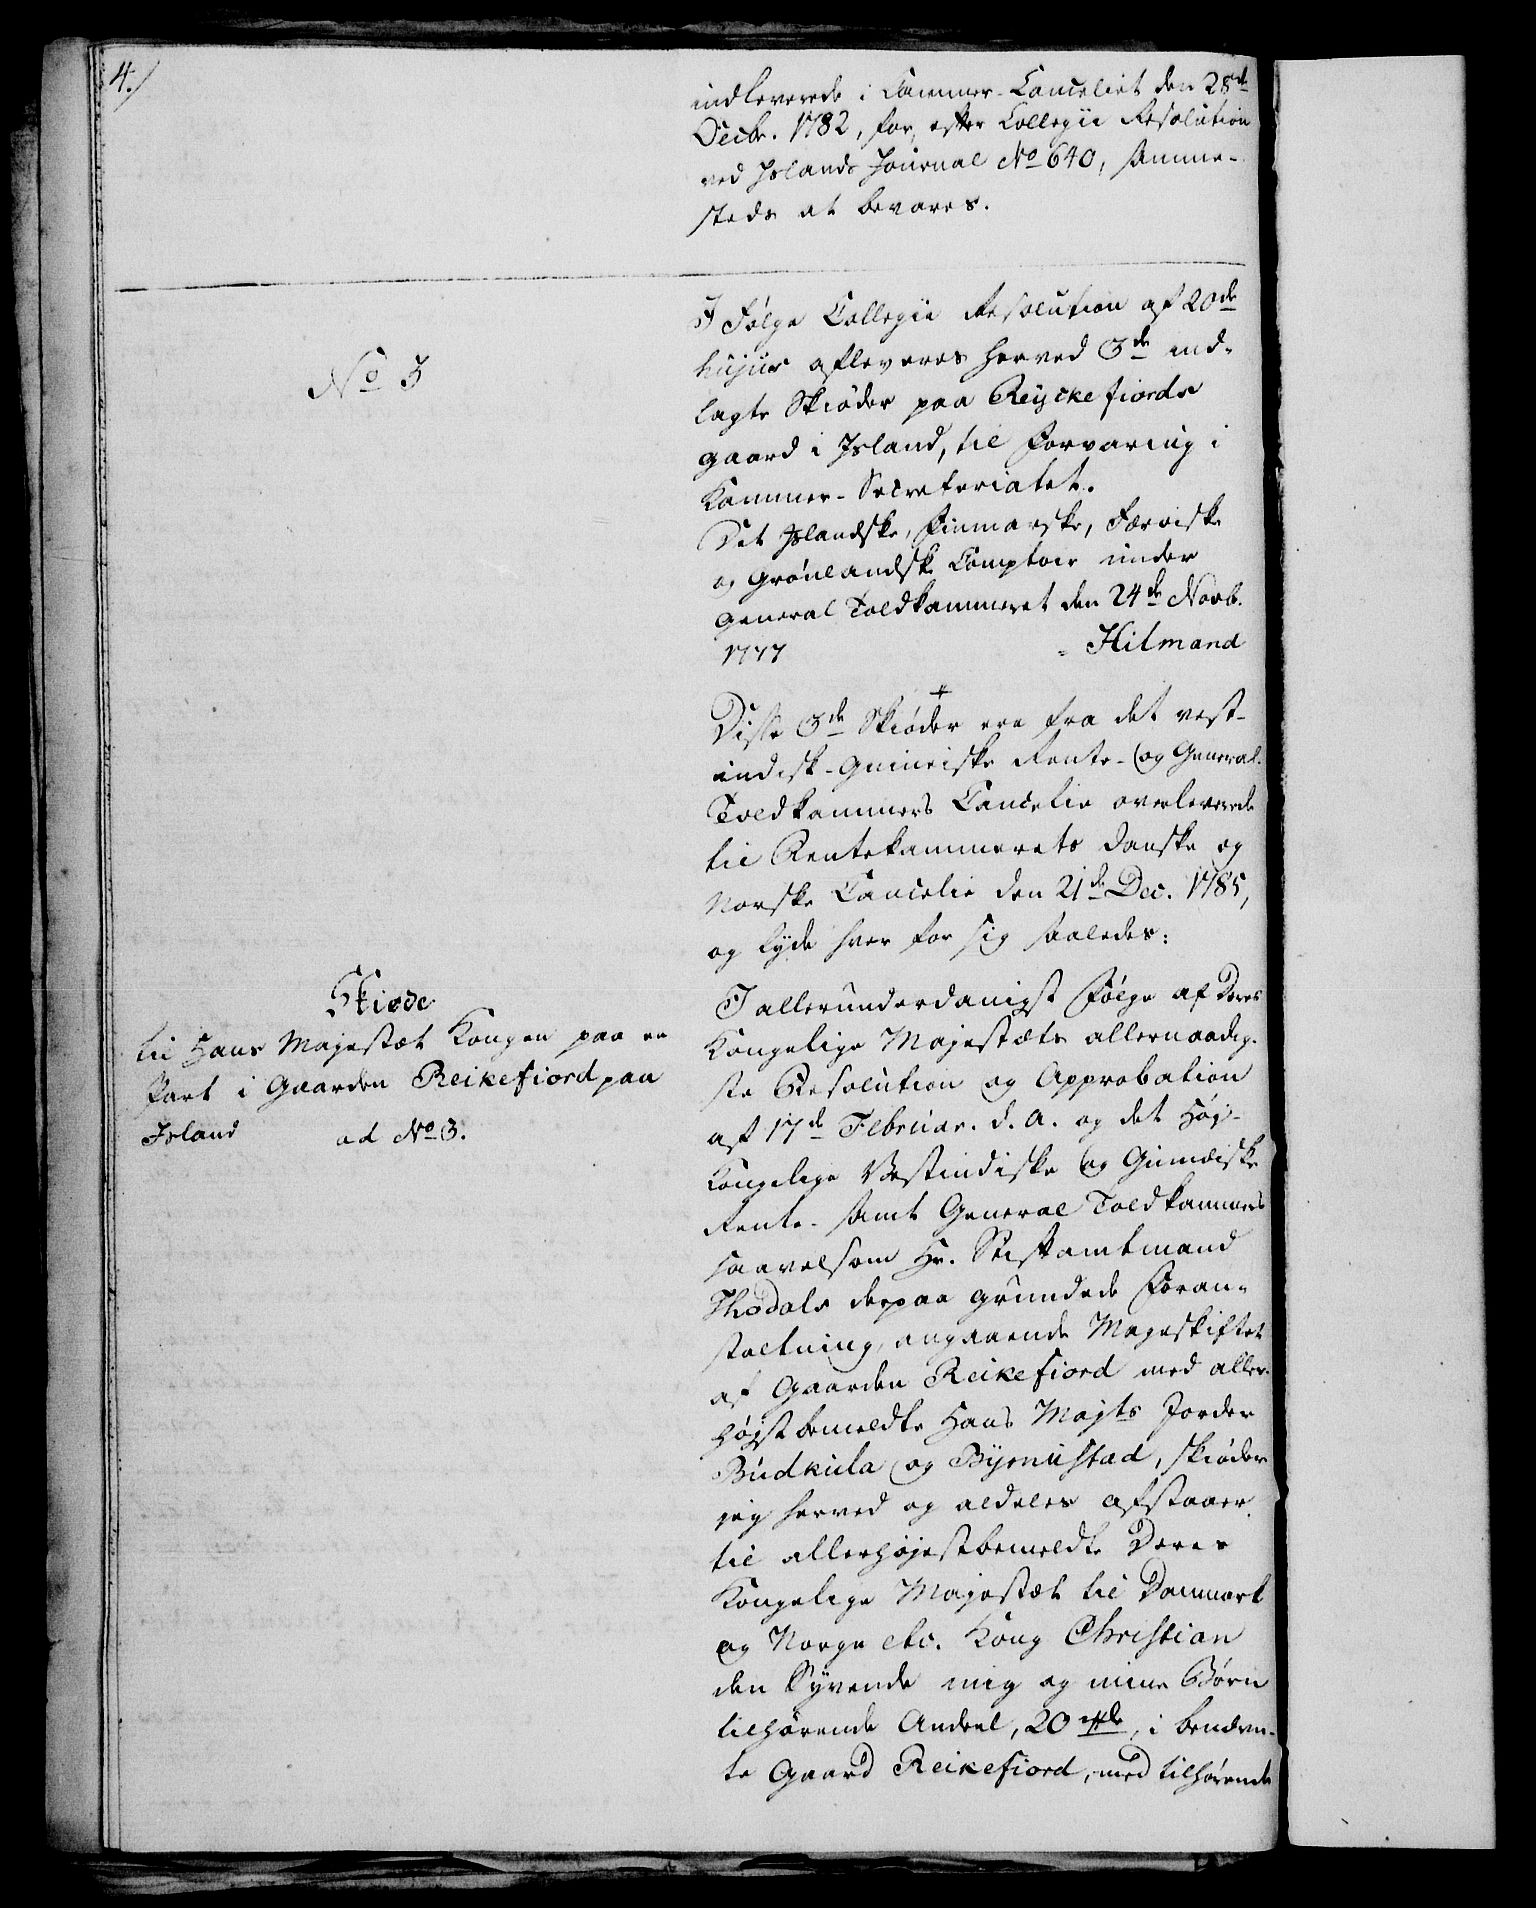 4./
indleverede i Cammer-Canceliet den 28de
Decbr. 1782, for, efter Collegii Resolution
ved Islands Journal No 640, samme-
steds at bevares.
No 3
I Følge Collegii Resolution af 20de
hujus afleveres herved 3de ind-
lagte Skiøder paa Reyckefiords
gaard i Island, til Forvaring i
Kammer-Secreteriatet.
Det Islandske, Finmarske, Færøiske
og Grønlandske Comptoir under
General Toldkammeret den 24de Novb.
1777 Hilmand
Disse 3de Skiøder ere fra det vest-
indisk-guineiske Rente- og General-
Toldkammers Cancelie overleverede
til Rentekammerets danske og
Norske Cancelie den 21de Dec. 1785,
og lyde hver for sig saaledes:
Skiøde
til Hans Majestæt Kongen paa en
Part i Gaarden Reikefiord paa
Island ad No 3.
I allerunderdanigst Følge af Deres
Kongelige Majestæts allernaadig-
ste Resolution og Approbation
af 17de Februar. d. a. og det Høj-
Kongelige Vestindiske og Guinæiske
Rente- samt General Toldkammers
saavelsom Hr. Stiftamtmand
Thodals derpaa grundede Foran-
staltning, angaaende Mageskiftet
af Gaarden Reikefiord med aller-
højstbemeldte Hans Majts Jorder
Budkula og Bysnustad, skiøder
jeg herved og aldeles afstaaer
til allerhøjestbemeldte Deres
Kongelige Majestæt til Danmark
og Norge etc. Kong Christian
den Syvende mig og mine Børn
tilhørende Andeel, 20 , i benævn-
te Gaard Reikefiord, med tilhørende